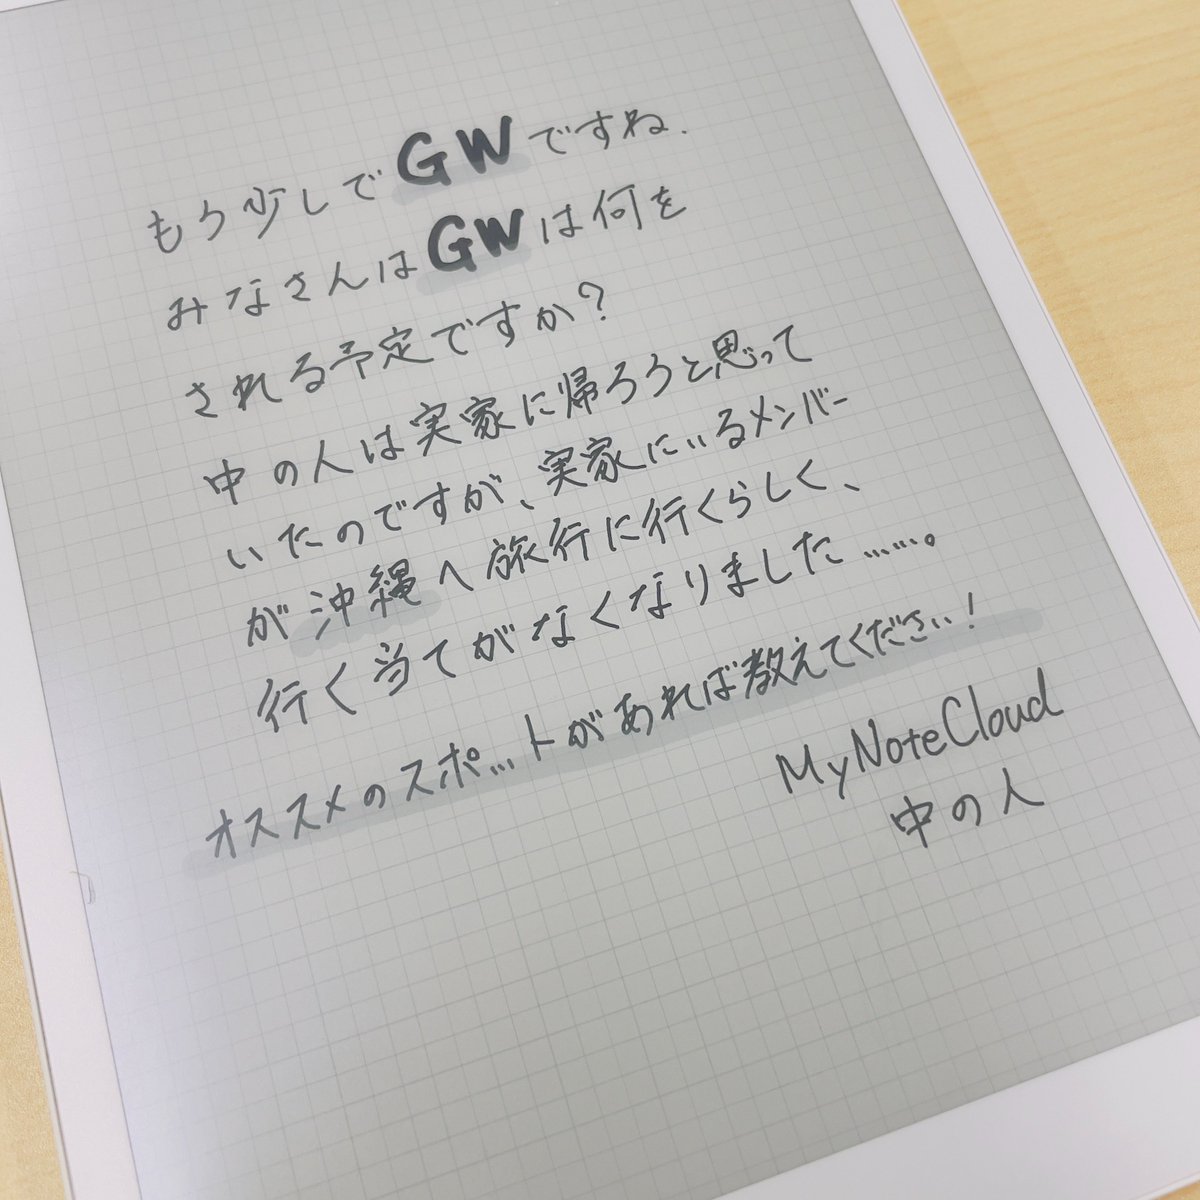 もう少しでGWですね.
みなさんはGWは何を
される予定ですか?
中の人は実家に帰ろうと思って
いたのですが、実家にいるメンバー
が沖縄へ旅行に行くらしく、
行く当てがなくなりました……。
オススメのスポットがあれば教えてください!
MyNoteCloud
中の人